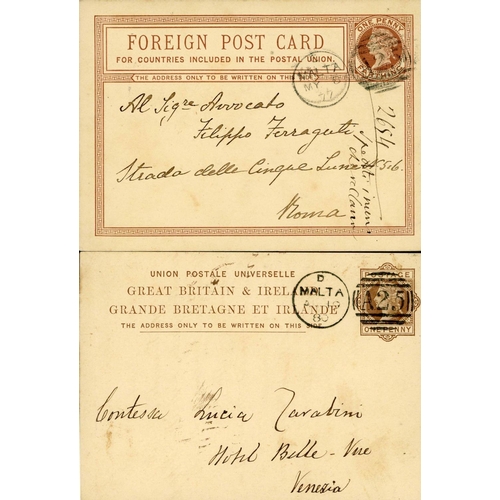 FOREIGN POST CARD
FOR COUNTRIES INCLUDED IN THE POSTAL UNION.
THE ADDRESS ONLY TO BE WRITTEN ON THIS
ONE PENNY
MALTA
MY
Al Sigre Avvocato
Filippo Ferraguti
Strada delle Cinque Lune N 5.6.
Roma
2694
UNION POSTALE UNIVERSELLE
GREAT BRITAIN & IRELAND
GRANDE BRETAGNE ET IRLANDE
THE ADDRESS ONLY TO BE WRITTEN ON THIS SIDE
D
MALTA
80
A25
POSTAGE
ONE PENNY
Contessa Lucia Zarabini
Hotel Belle-Vue
Venezia